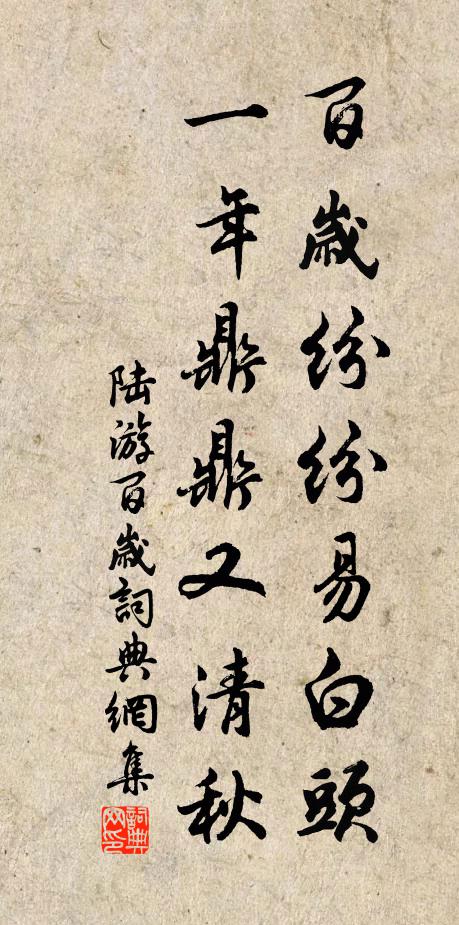 百歲紛紛易白頭
一年鼎鼎又清秋
陆游百歲詞典網集
詞典网印